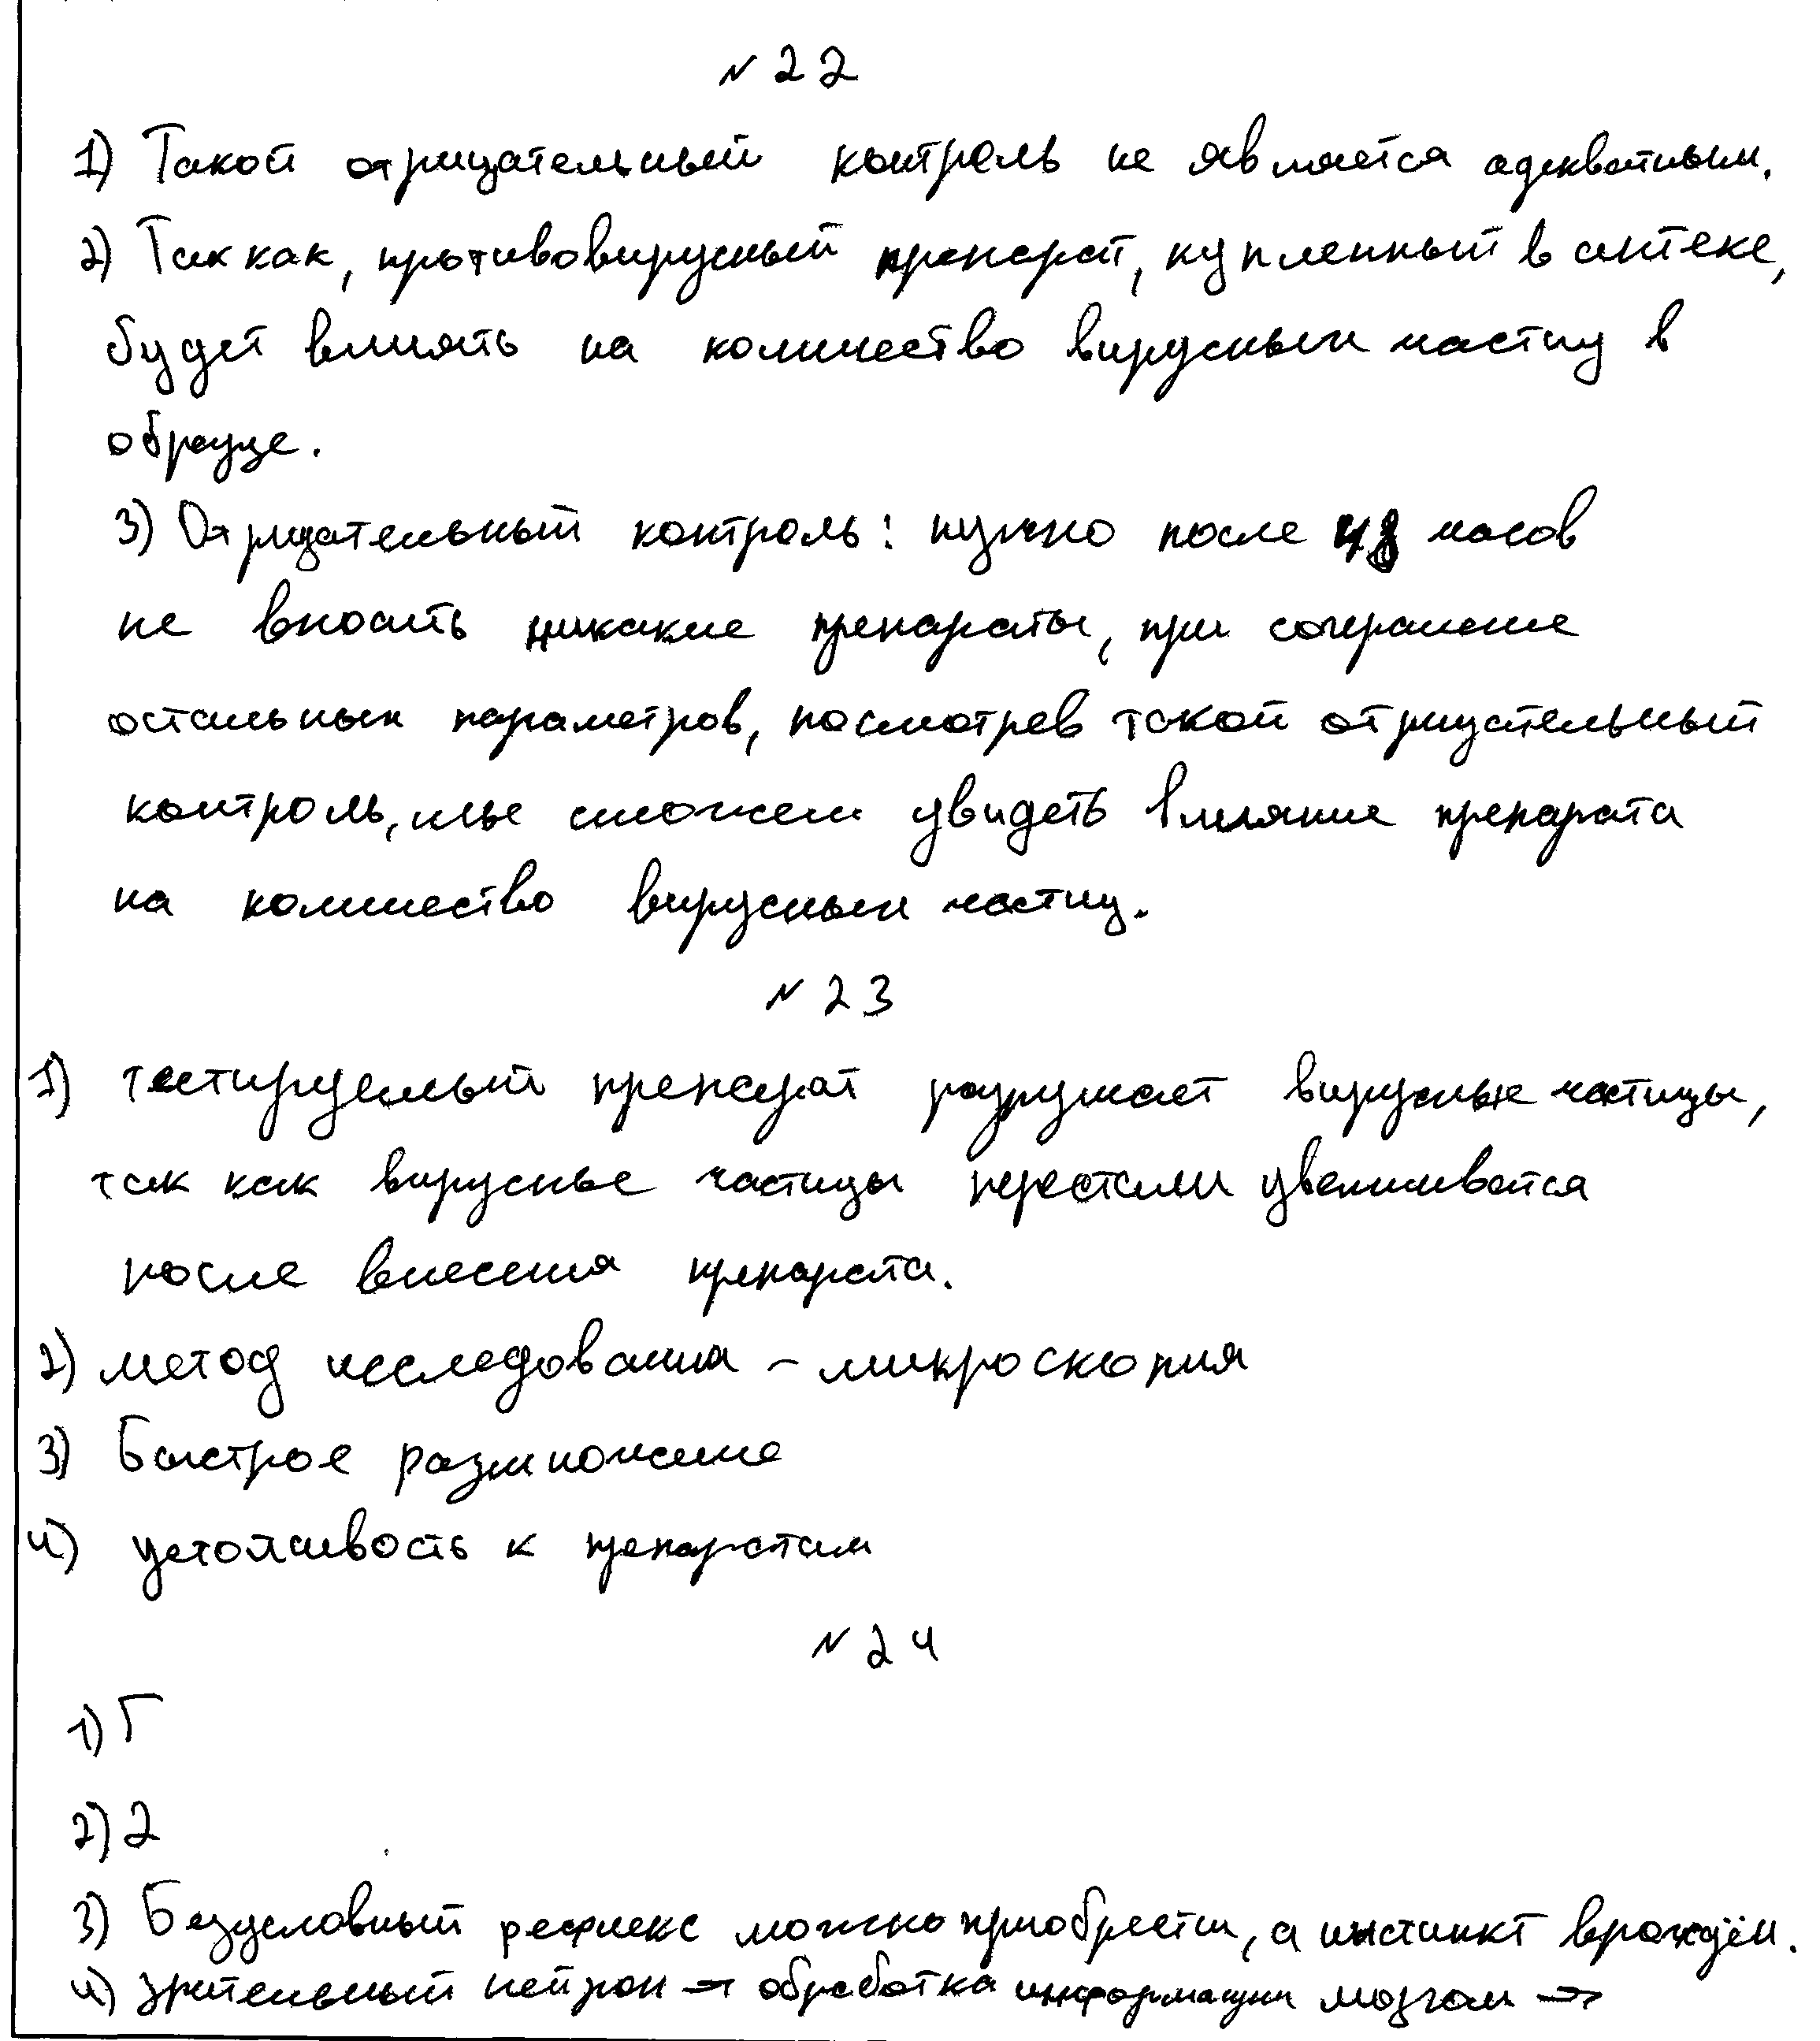 № 22
1) Такой отрицательный контроль не является адекватным.
2) Так как, противовирусный препарат, купленный в аптеке,
будет влиять на количество вирусных частиц в
образце.
3) Отрицательный контроль: нужно после 48 часов
не вносить никакие препараты, при сохранение
остальных параметров, посмотрев такой отрицательный
контроль, мы сможем увидеть влияние препарата
на количество вирусных частиц.
№ 23
1) тестируемый препарат разрушает вирусные частицы,
так как вирусные частицы перестали увеличиватся
после внесения препарата.
2) метод исследования – микроскопия
3) Быстрое размножение
4) устойчивость к препаратам
№ 24
1) Г
2) 2
3) Безусловный рефлекс можно приобрести, а инстинкт врождён.
4) зрительный нейрон → обработка информации мозгом →